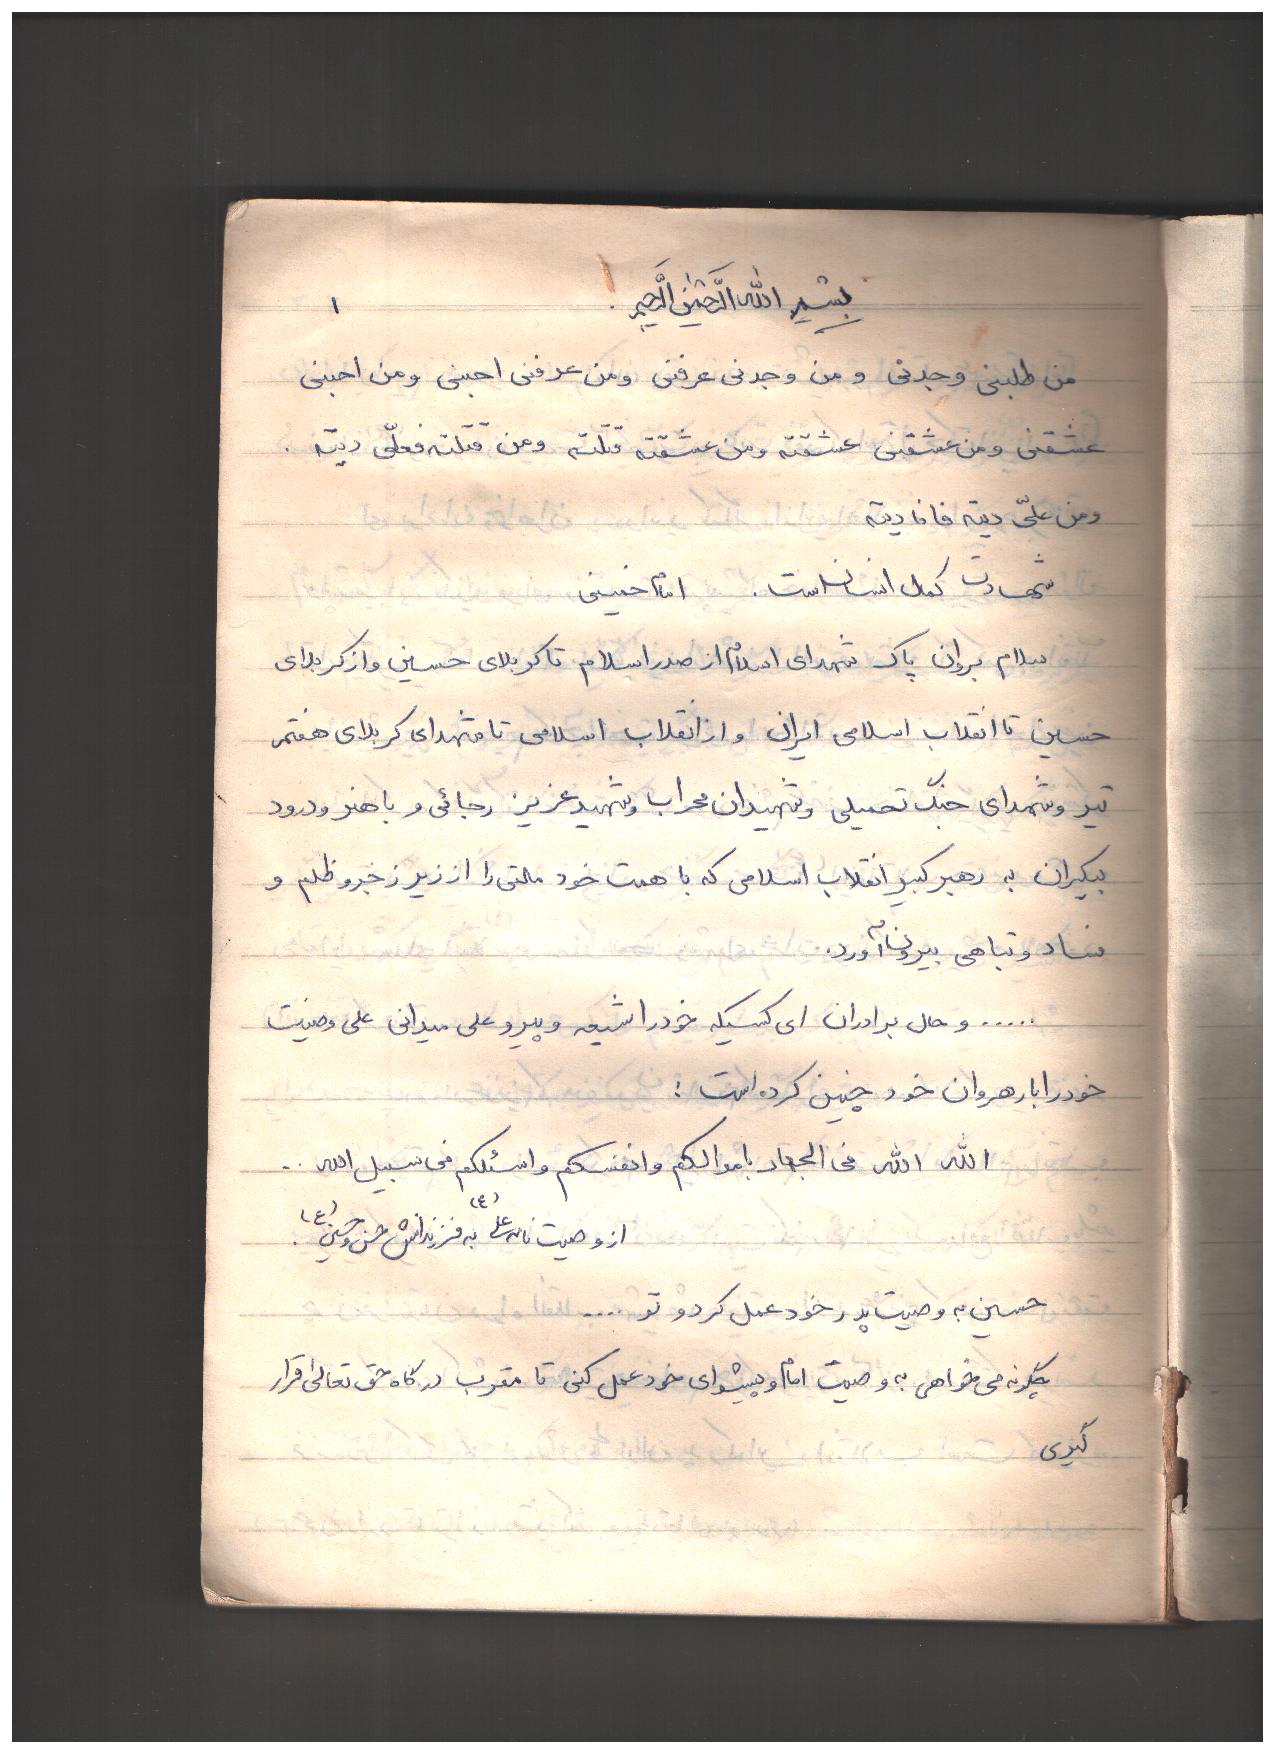 بسم الله الرحمن الرحیم ۱
من طلبنی وجدنی و من وجدنی عرفنی ومن عرفنی احبنی ومن احبنی
عشقنی ومن عشقنی عشقته ومن عشقته قتلته ومن قتلته فعلّی دیته .
ومن علیّ دیته فانا دیته
شهادت کمال انسان است . امام خمینی
سلام بروان پاک شهدای اسلام از صدر اسلام تا کربلای حسین و از کربلای
حسین تا انقلاب اسلامی ایران و از انقلاب اسلامی تا شهدای کربلای هفتم
تیر وشهدای جنگ تحمیلی وشهیدان محراب وشهید عزیز رجائی و باهنر ودرود
بیکران به رهبر کبیر انقلاب اسلامی که با همت خود ملتی را از زیر زجر و ظلم و
فساد و تباهی بیرون آورد.
..... و حال برادران ای کسیکه خود را شیعه و پیرو علی میدانی علی وصیت
خود را با رهروان خود چنین کرده است :
الله الله فی الجهاد باموالکم وانفسکم واسئلکم فی سبیل الله ..
از وصیت نامه علی (ع) به فرزندانش حسن وحسین (ع) .
حسین به وصیت پدر خود عمل کرد و تو ....
چگونه می خواهی به وصیت امام و پیشوای خود عمل کنی تا مقرب درگاه حق تعالی قرار
گیری